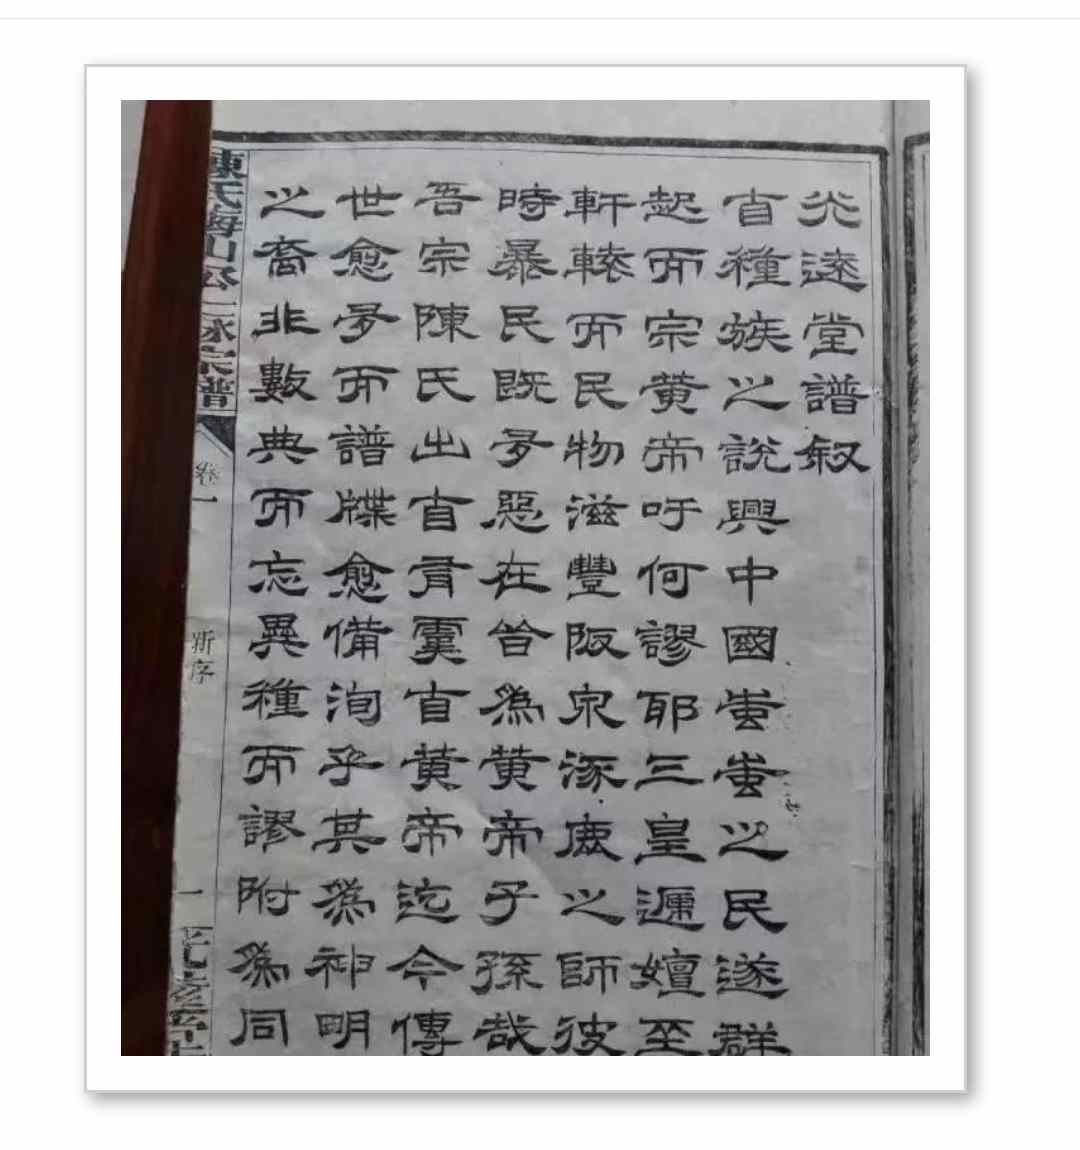 光遠堂譜叙
自種族之說興中國蚩蚩之民遂群
起而宗黃帝吁何謬耶三皇遞嬗至
軒轅而民物滋豐阪泉涿鹿之師彼
時暴民既多惡在皆為黃帝子孫哉
吾宗陳氏出自有虞自黃帝迄今傳
世愈多而譜牒愈備洵乎其為神明
之裔非數典而忘異種而謬附為同
陳氏海山公二脉宗譜
卷一
新序
一